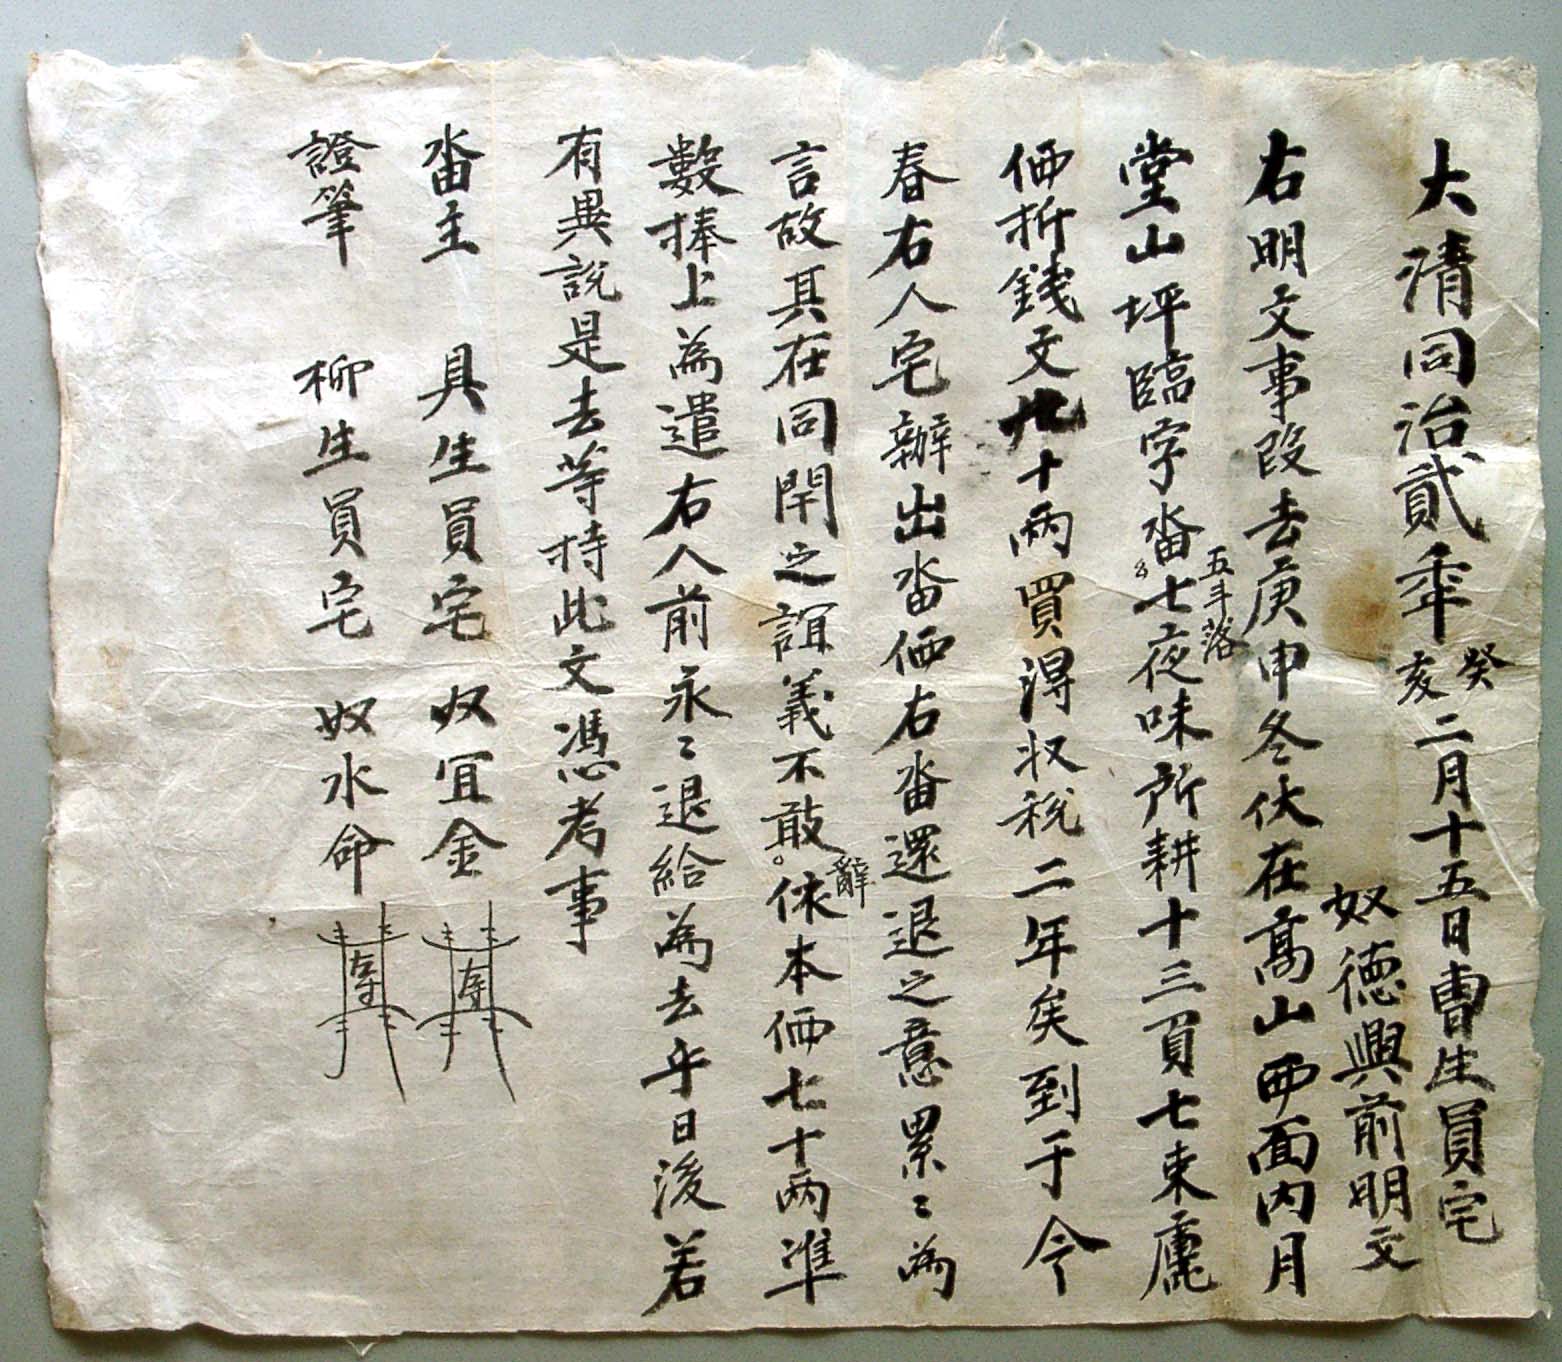 大清同治貳年癸亥二月十五日曺生員宅
奴德興前明文
右明文事段去庚申冬伏在高山西面內月
堂山坪臨字畓五斗落七夜味所耕十三負七束
価折錢文十兩買得収稅二年矣到于今
春右人宅辦出畓価右畓還退之意累〻為
言故其在同閈之誼義不敢辭依本価七十兩準
數捧上為遣右人前永〻退給為去乎日後若
有異說是去等持此文憑考事
畓主 具生員宅 奴冝金 左寸
證筆 柳生員宅 奴水命 左寸